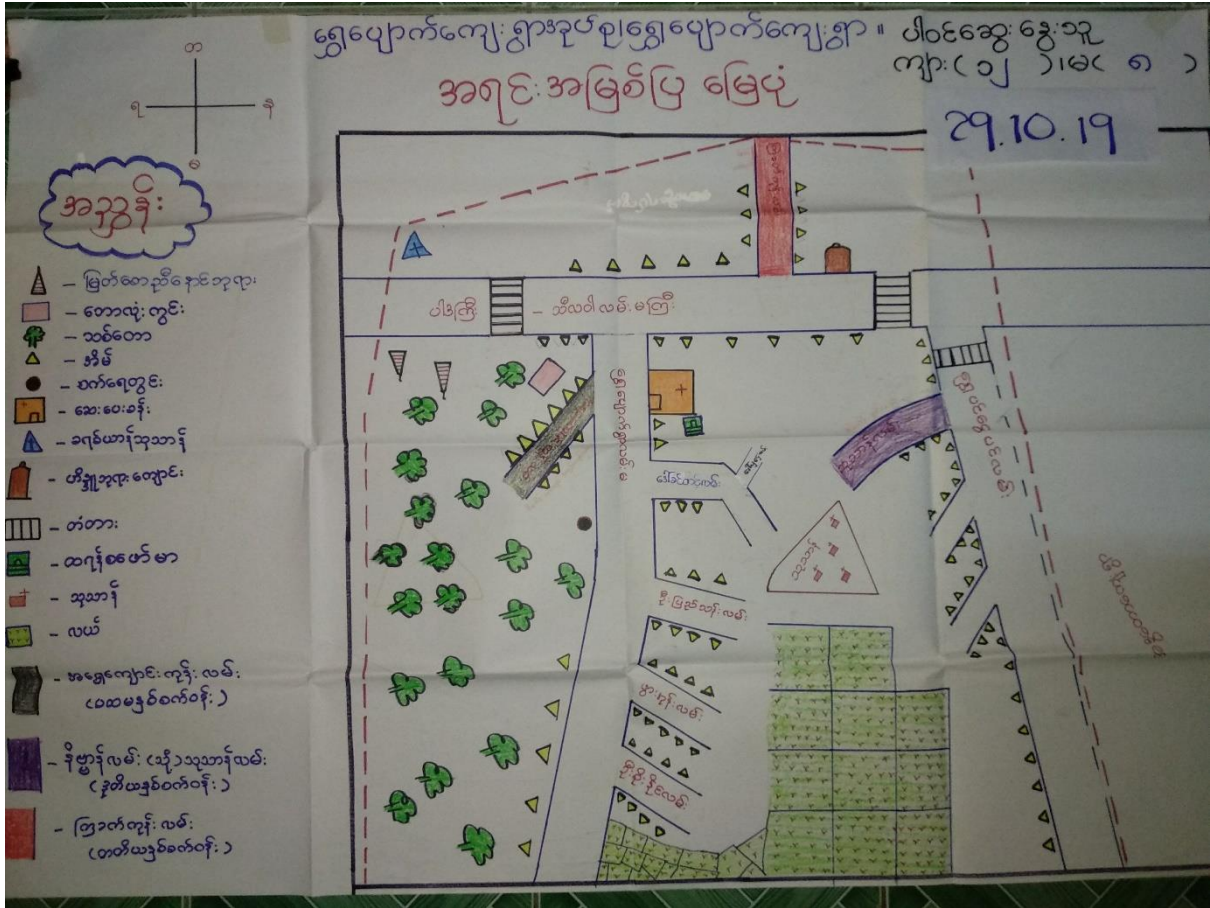 ရွှေပျောက်ကျေးရွာအုပ်စု၊ရွှေပျောက်ကျေးရွာ။
ပါဝင်ဆွေးနွေးသူ
ကျား(၁၂)၊မ(၈)
အရင်းအမြစ်ပြ မြေပုံ
29.10.19
တ
ရ
န
မ
အညွှန်း
- မြတ်စောညီနောင်ဘုရား
- ဘောလုံးကွင်း
- သစ်တော
- အိမ်
- စက်ရေတွင်း
- ဆေးပေးခန်း
- ခရစ်ယာန်သုသာန်
- ဟိန္ဒူဘုရားကျောင်း
- တံတား
- ထရန်စဖော်မာ
- သုသာန်
- လယ်
- အရှေ့ကျောင်းကုန်းလမ်း
(ပထမနှစ်စက်ဝန်း)
- နိဗ္ဗာန်လမ်း (သို့) သုသာန်လမ်း
(ဒုတိယနှစ်စက်ဝန်း)
- ကြခတ်ကုန်းလမ်း
(တတိယနှစ်ခက်ဝန်း)
ပါဒကြီး
- သီလဝါလမ်းမကြီး
သုသာန်လမ်း
သုသာန်
ဦးမြည်သန်းလမ်း
ဖွားထွန်းလမ်း
ဦးစိုးနိုင်လမ်း